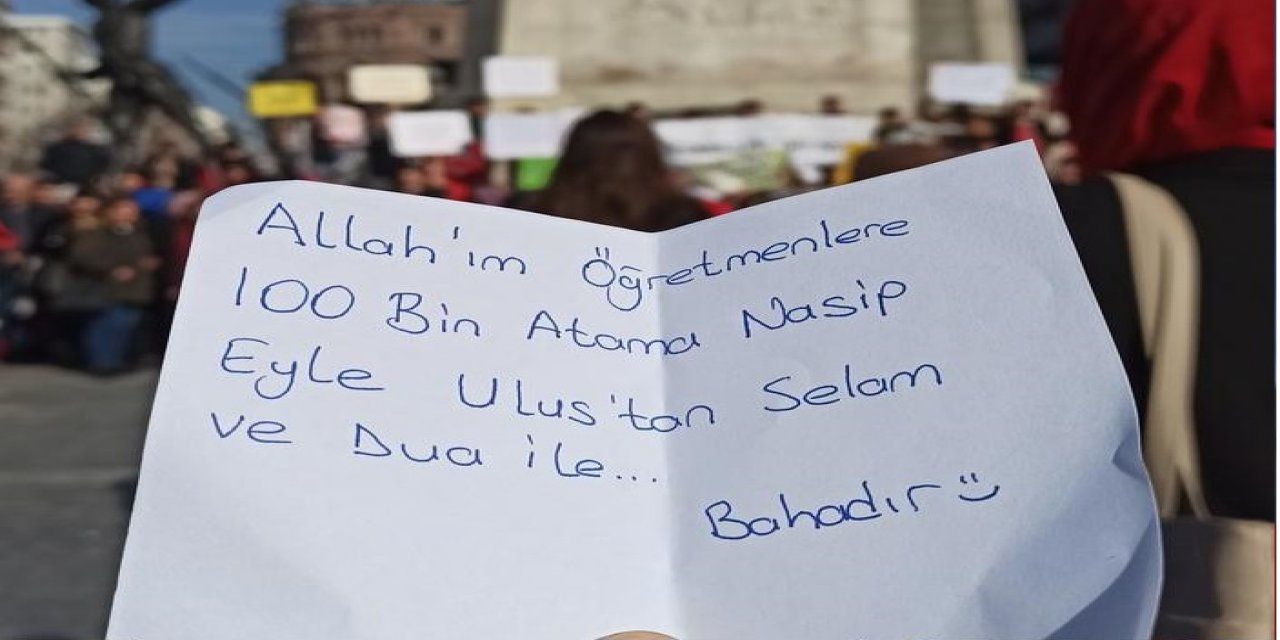 Allah'ım Öğretmenlere
100 Bin Atama Nasip
Eyle Ulus'tan Selam
ve Dua ile...
Bahadır